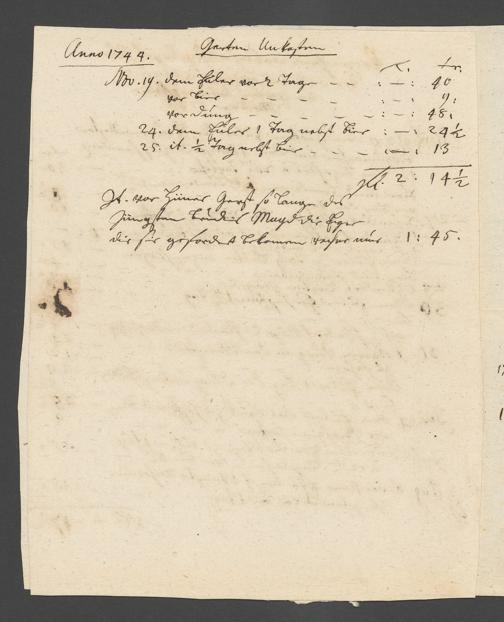 Anno 1744. Garten Unkosten
f. Xr.
Nov. 19. dem Euler vor 2 Tage - - : — : 40
vor bier - - - - - : — : 9:
vor dung - - - : — : 48:
24. dem Euler 1 Tag nebst bier : — : 24 1/2
25. it. 1/2 Tag nebst bier - - - : — : 13
fl. 2 : 14 1/2
It. vor Hüner Gerst so lange des
Jüngsten Magd die Eyer
die sie gefordert bekomen 1 : 45.